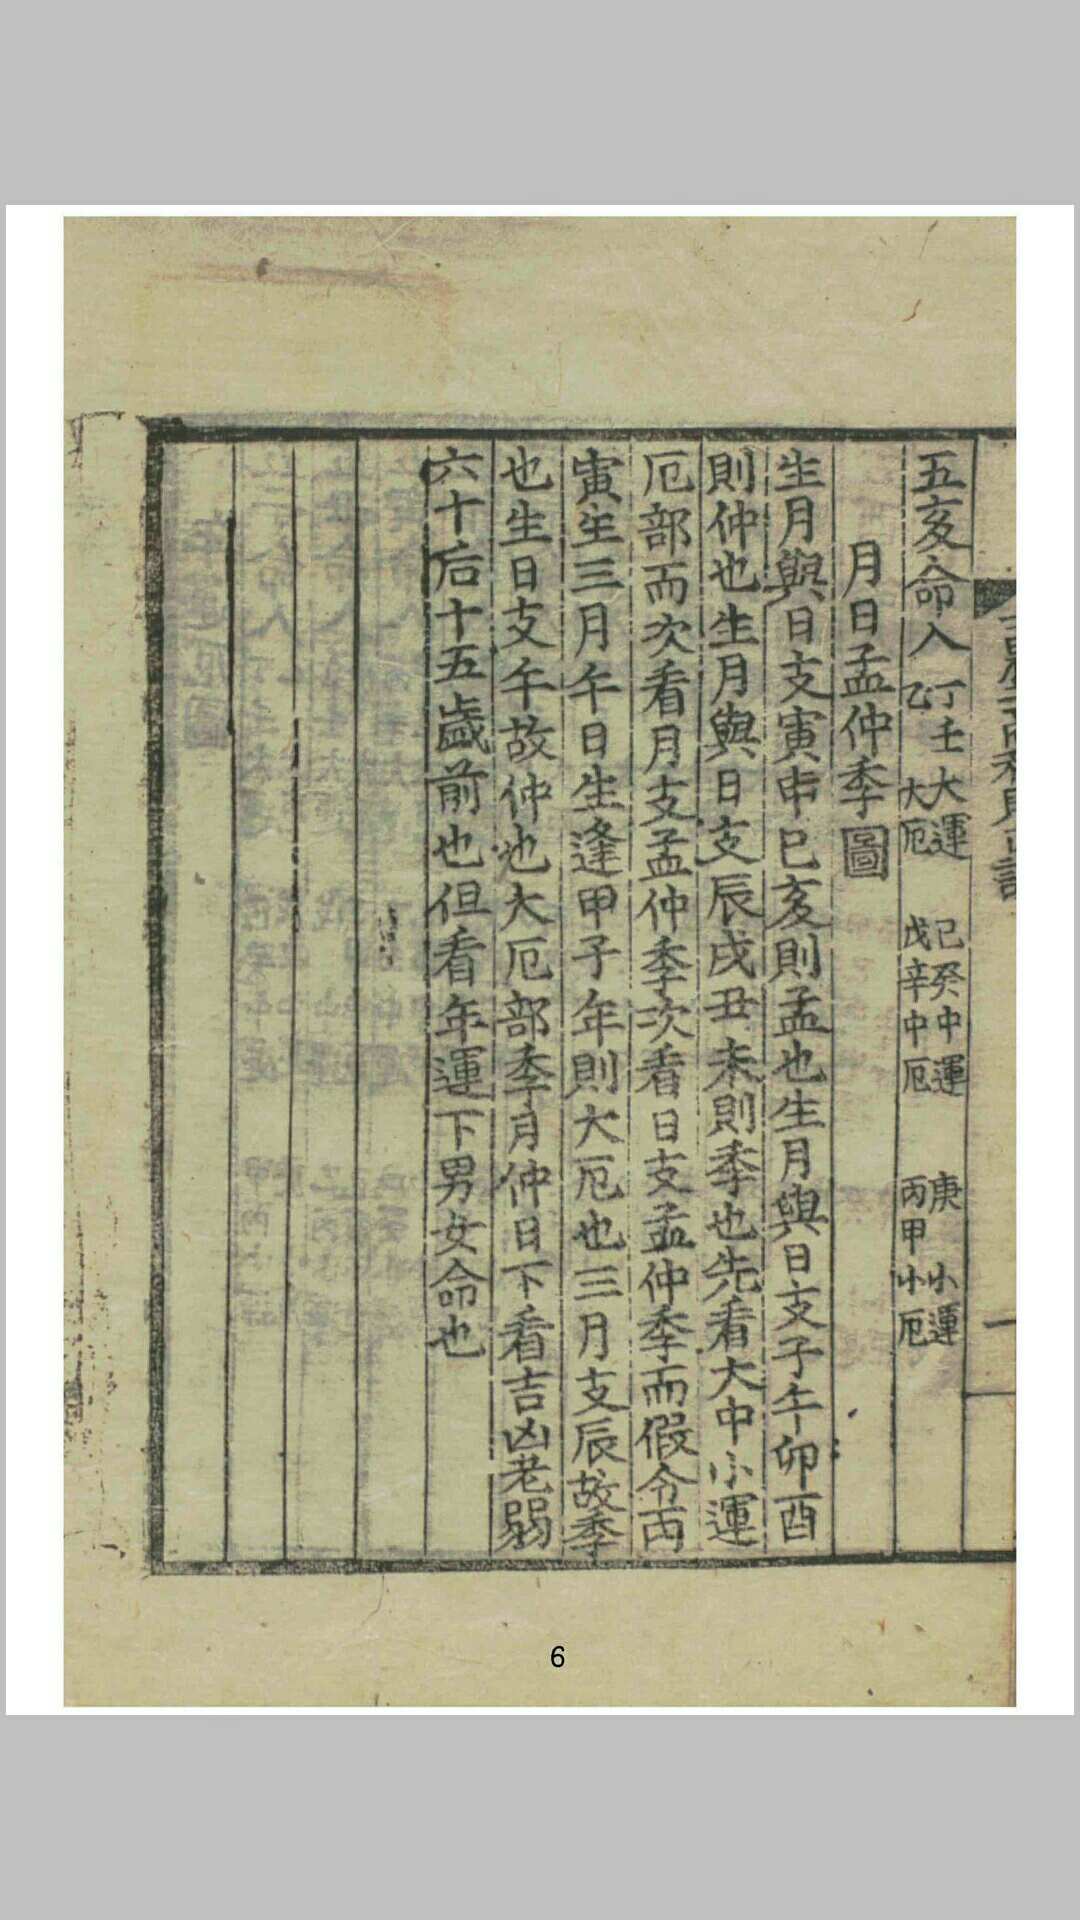 五亥命人 丁壬大運 乙 大厄 己癸中運 戊辛中厄 庚 小運 丙甲小厄
月日孟仲季圖
生月與日支寅申巳亥則孟也生月與日支子午卯酉
則仲也生月與日支辰戌丑未則季也先看大中小運
厄部而次看月支孟仲季次看日支孟仲季而假令丙
寅生三月午日生逢甲子年則大厄也三月支辰故季
也生日支午故仲也大厄部季月仲日下看吉凶老弱
六十后十五歲前也但看年運下男女命也
6